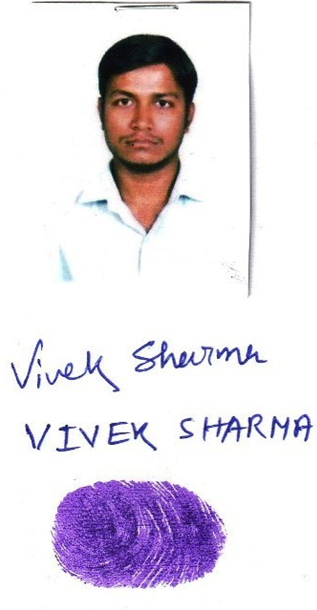 Vivek Sharma
VIVEK SHARMA